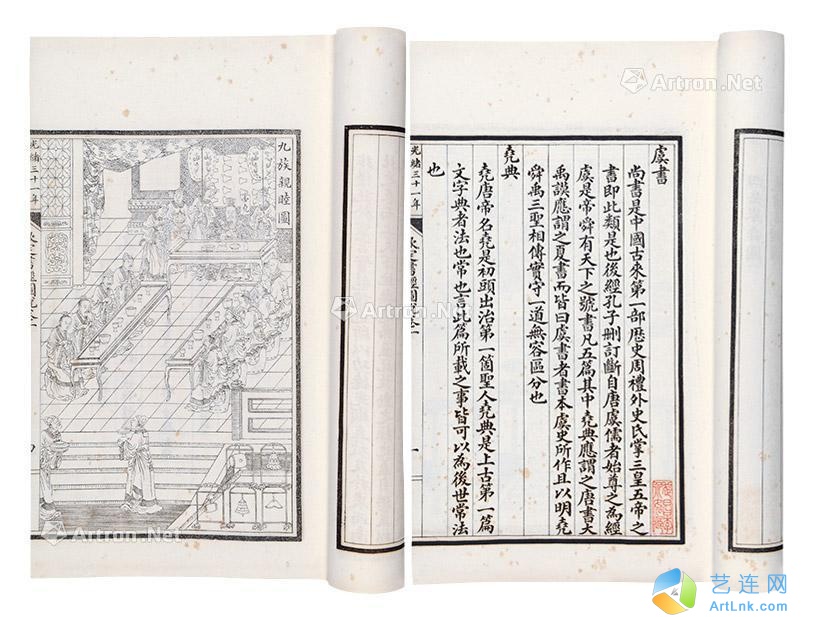 虞書
尚書是中國古來第一部歷史周禮外史氏掌三皇五帝之
書即此類是也後經孔子刪訂斷自唐虞儒者始尊之為經
虞是帝舜有天下之號書凡五篇其中堯典應謂之唐書大
禹謨應謂之夏書而皆曰虞書者書本虞史所作且以明堯
舜禹三聖相傳實守一道無容區分也
堯典
堯唐帝名堯是初頭出治第一箇聖人堯典是上古第一篇
文字典者法也常也言此篇所載之事皆可以為後世常法
也
九族親睦圖
光緒三十一年
Artron.Net
Artron.Net
Artron.Net
Artron.Net
艺连网
ArtLnk.com